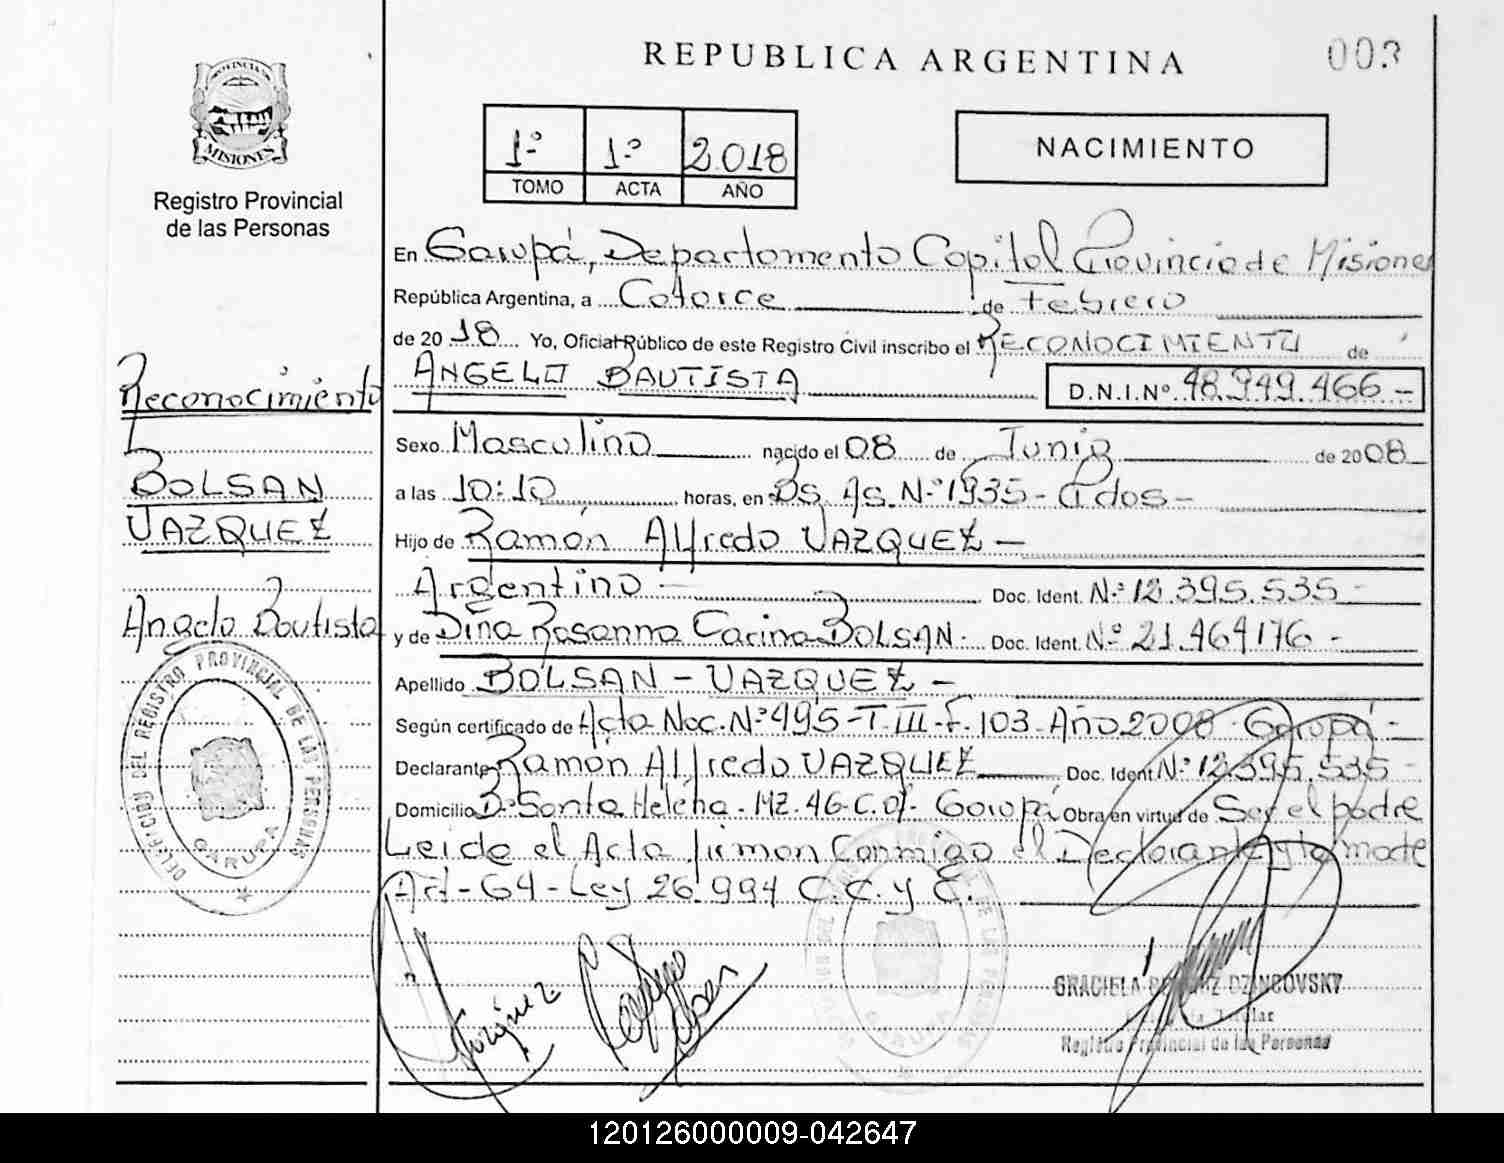 REPUBLICA ARGENTINA
003
PROVINCIA DE
MISIONES
Registro Provincial
de las Personas
1º 1º 2.018
TOMO ACTA AÑO
NACIMIENTO
En Garupá, Departamento Capital Provincia de Misiones
República Argentina, a Catorce de Febrero
de 2018 Yo, Oficial Público de este Registro Civil inscribo el RECONOCIMIENTO de
ANGELO BAUTISTA D.N.I.Nº 48.949.466 -
Reconocimiento
BOLSAN
VAZQUEZ
Angelo Bautista
Sexo Masculino nacido el 08 de Junio de 2008
a las 10:10 horas, en Bs. As. Nº 1935 - Pdos -
Hijo de Ramón Alfredo VAZQUEZ -
Argentino - Doc. Ident. Nº 12.395.535 -
y de Dina Rosanna Carina BOLSAN - Doc. Ident. Nº 21.464176 -
Apellido BOLSAN - VAZQUEZ -
Según certificado de Acta Nac. Nº 495 - T. III - F. 103 - Año 2008 - Garupá -
Declarante Ramón Alfredo VAZQUEZ Doc. Ident. Nº 12.395.535 -
Domicilio Bº Santa Helena - MZ. 46 - C. 01 - Garupá Obra en virtud de Ser el padre
Leida el Acta firman Conmigo el Declarante y la madre
Art - 64 - Ley 26.994 C.C. y C.
DELEGACION DEL REGISTRO PROVINCIAL DE LAS PERSONAS
GARUPA
Vazquez
GARUPA
GRACIELA DZINCOVSKY
Registro Provincial de las Personas
120126000009-042647